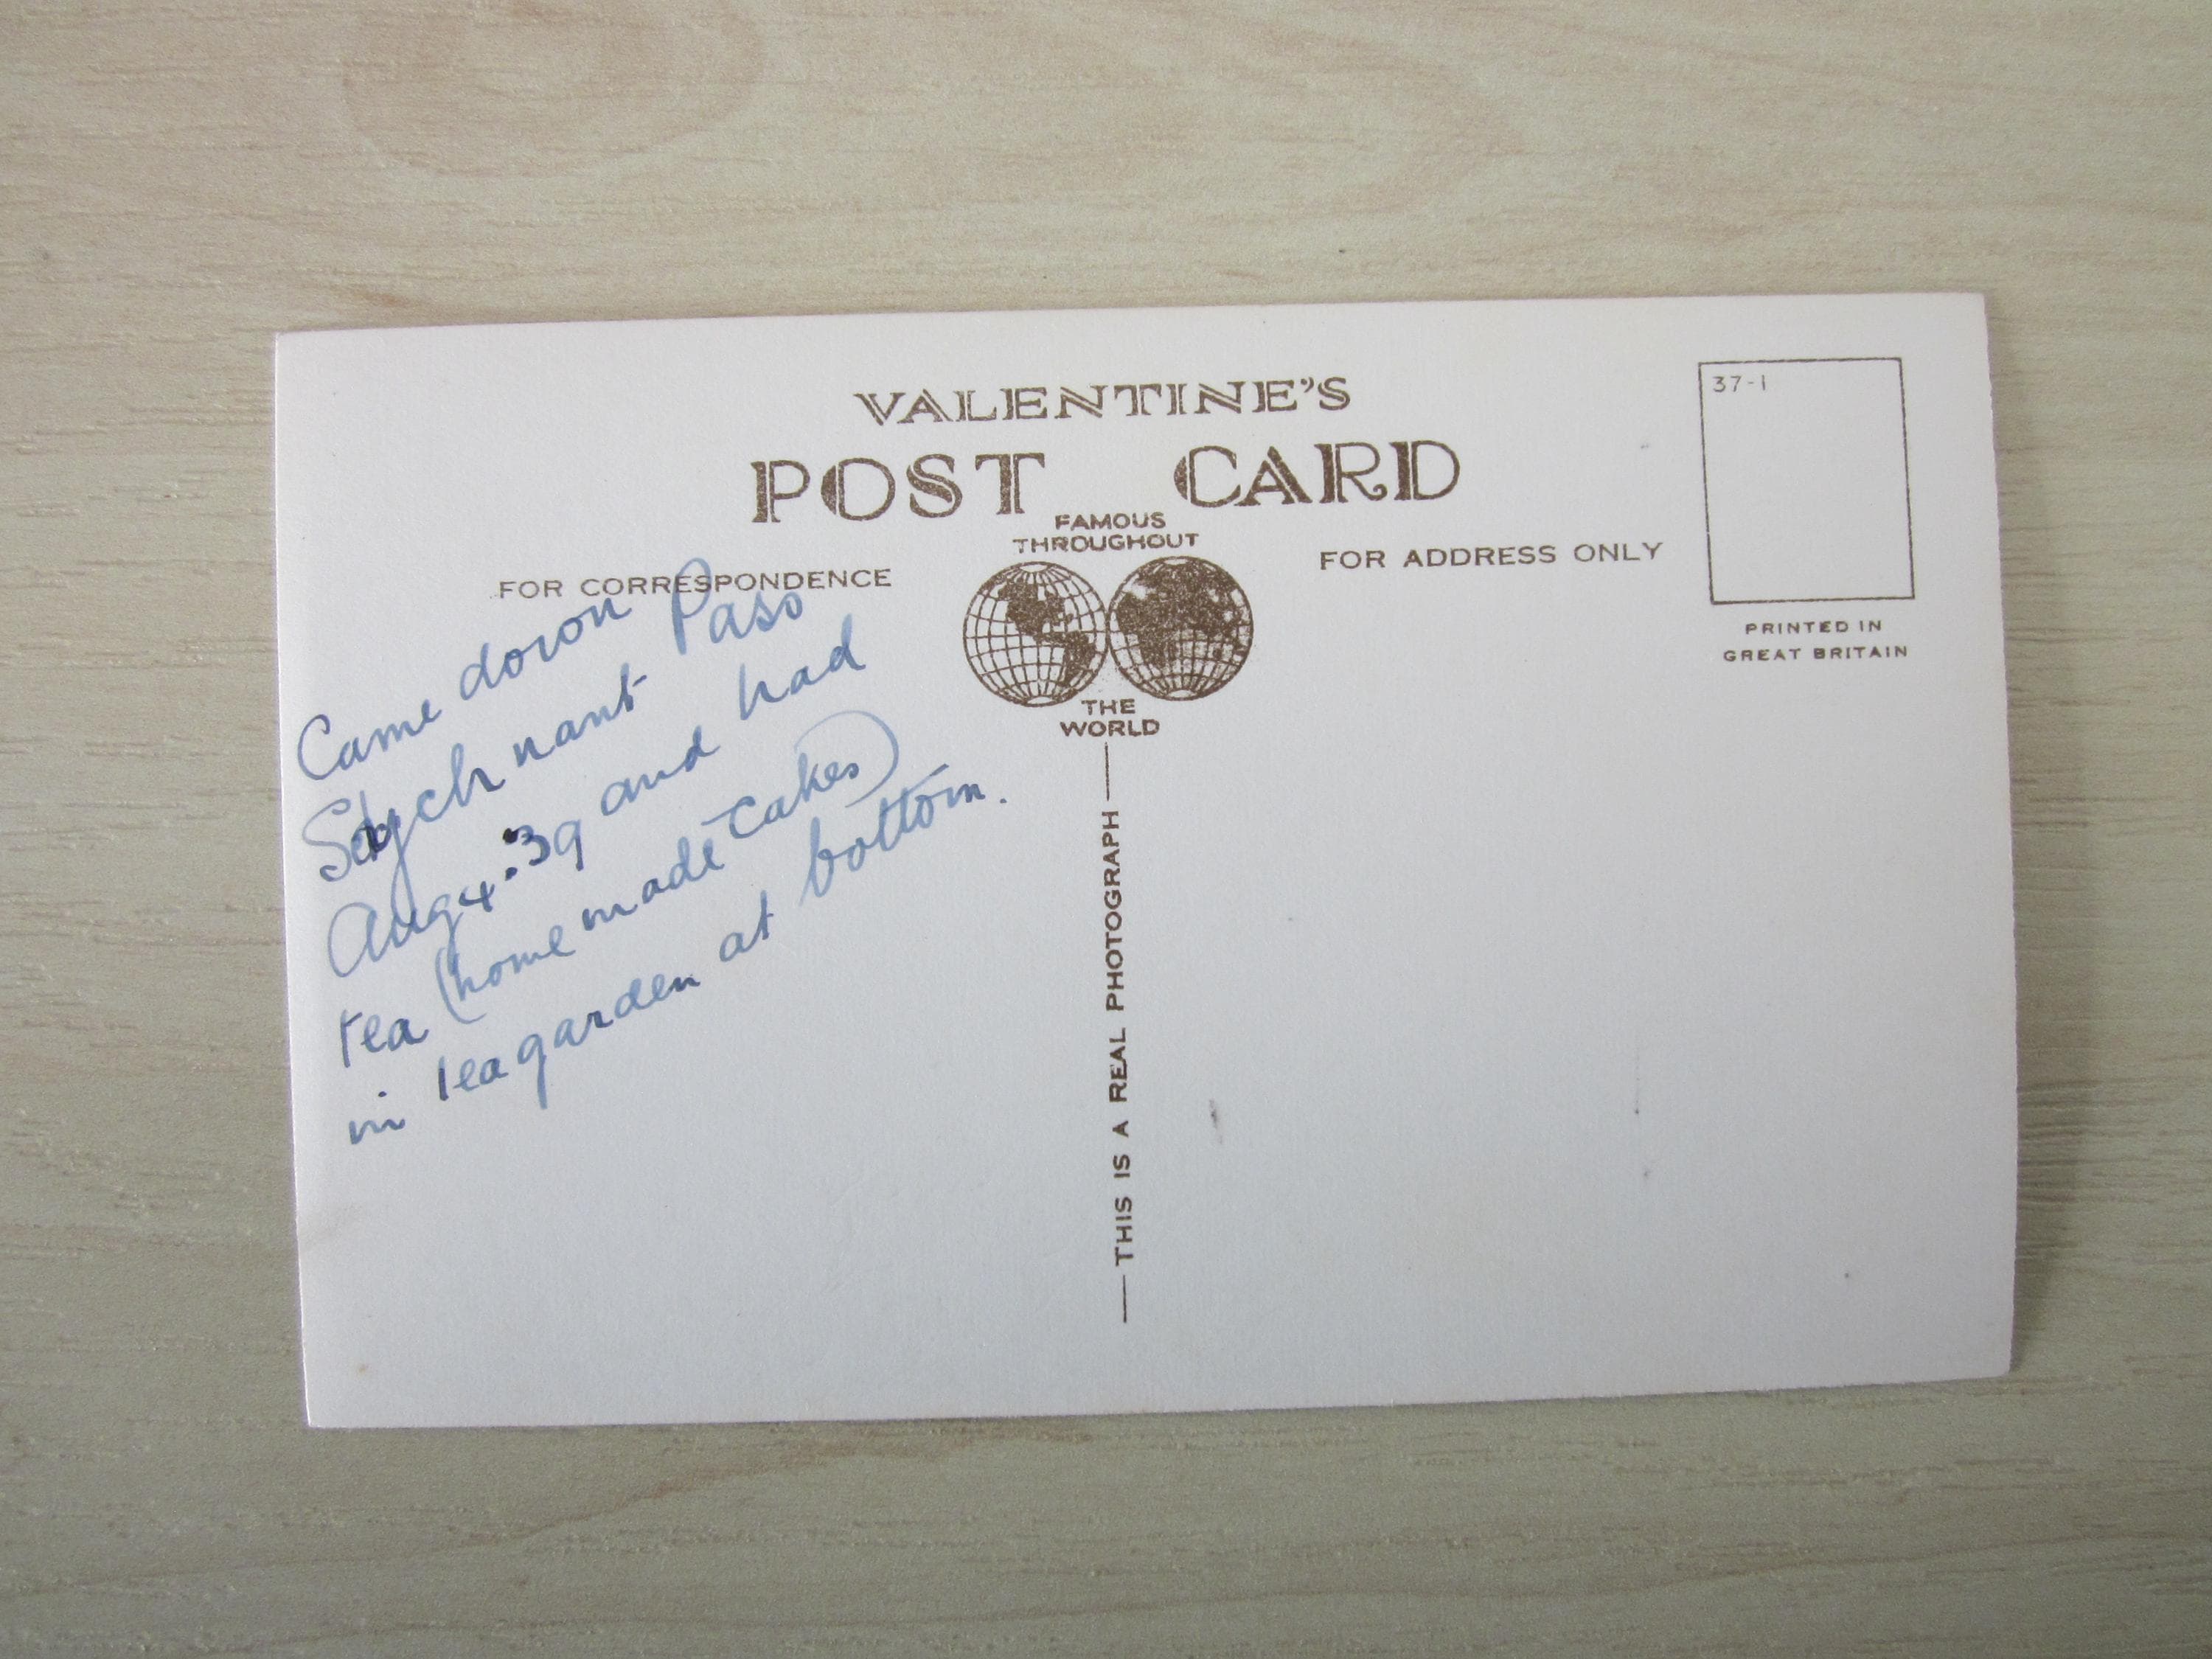 VALENTINE'S
POST CARD
FAMOUS
THROUGHOUT
THE
WORLD
FOR CORRESPONDENCE
FOR ADDRESS ONLY
37-1
PRINTED IN
GREAT BRITAIN
Came down Pass
Sychnant
Aug 4. 39 and had
tea (home made cakes)
in tea garden at bottom.
THIS IS A REAL PHOTOGRAPH